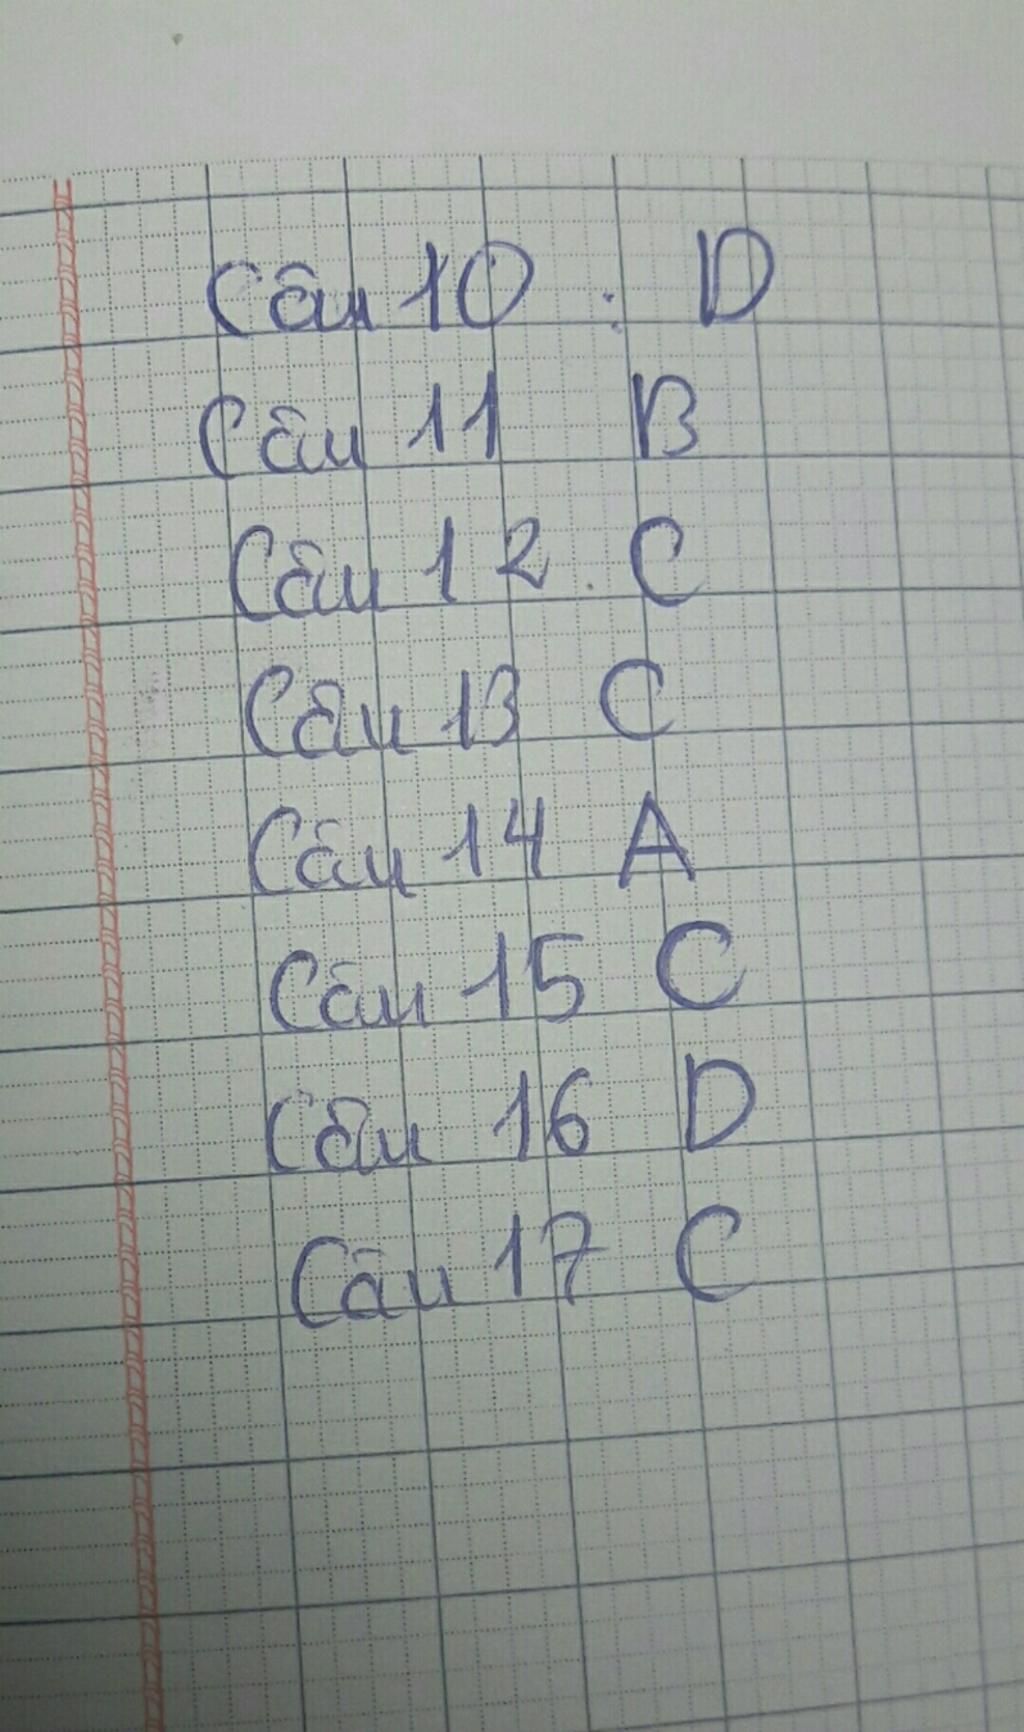 Câu 10 : D
Câu 11 B
Câu 12. C
Câu 13 C
Câu 14 A
Câu 15 C
Câu 16 D
Câu 17 C